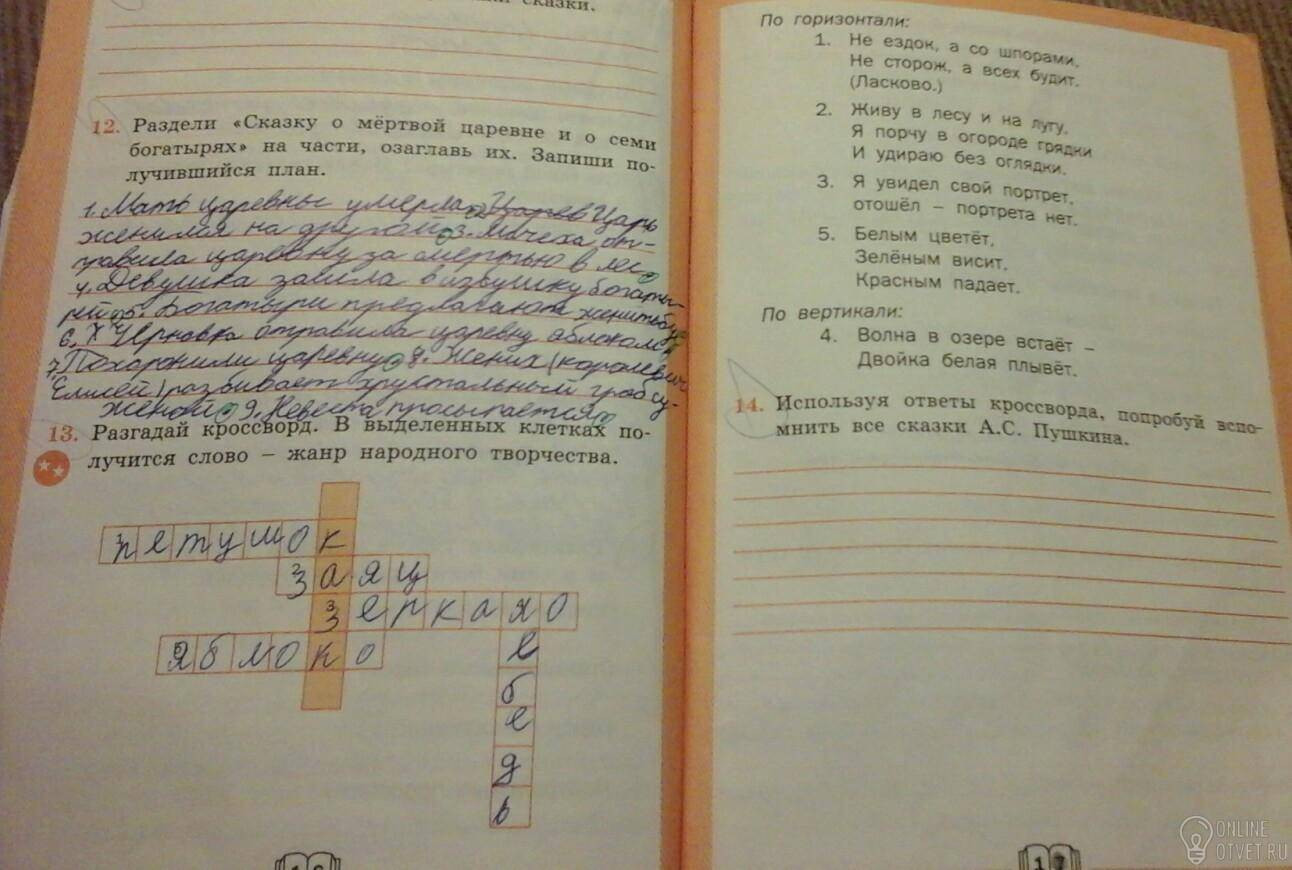 сказки.
12. Раздели «Сказку о мёртвой царевне и о семи
богатырях» на части, озаглавь их. Запиши по-
лучившийся план.
1. Мать царевны умерла 2. Царь
женился на другой. 3. Мачеха от-
правила царевну за смертью в лес
4. Девушка зашла в избушку богаты-
рей 5. Богатыри предлагают женитьбу
6. Чернавка отравила царевну яблоком
7. Похоронили царевну 8. Жених (королевич
Елисей) разбивает хрустальный гроб су-
женой 9. Невеста просыпается
13. Разгадай кроссворд. В выделенных клетках по-
лучится слово – жанр народного творчества.
петушок
заяц
зеркало
яблоко
лебедь
По горизонтали:
1. Не ездок, а со шпорами,
Не сторож, а всех будит.
(Ласково.)
2. Живу в лесу и на лугу,
Я порчу в огороде грядки
И удираю без оглядки.
3. Я увидел свой портрет,
отошёл – портрета нет.
5. Белым цветёт,
Зелёным висит,
Красным падает.
По вертикали:
4. Волна в озере встаёт –
Двойка белая плывёт.
14. Используя ответы кроссворда, попробуй вспо-
мнить все сказки А.С. Пушкина.
17
ONLINE
OTVET.RU